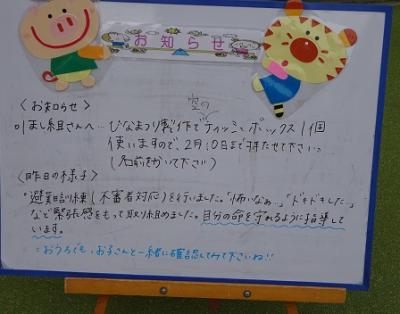 お知らせ
〈お知らせ〉
ほし組さんへ… ひなまつり製作で空のティッシュボックス1個
使いますので、2月10日まで持たせて下さい。
(名前をかいて下さい)
〈昨日の様子〉
避難訓練(不審者対応)を行いました。「怖いなぁ…」「ドキドキした…」
など緊張感をもって取り組めました。自分の命を守れるように指導して
います。
おうちでも、お子さんと一緒に確認してみて下さいね!!